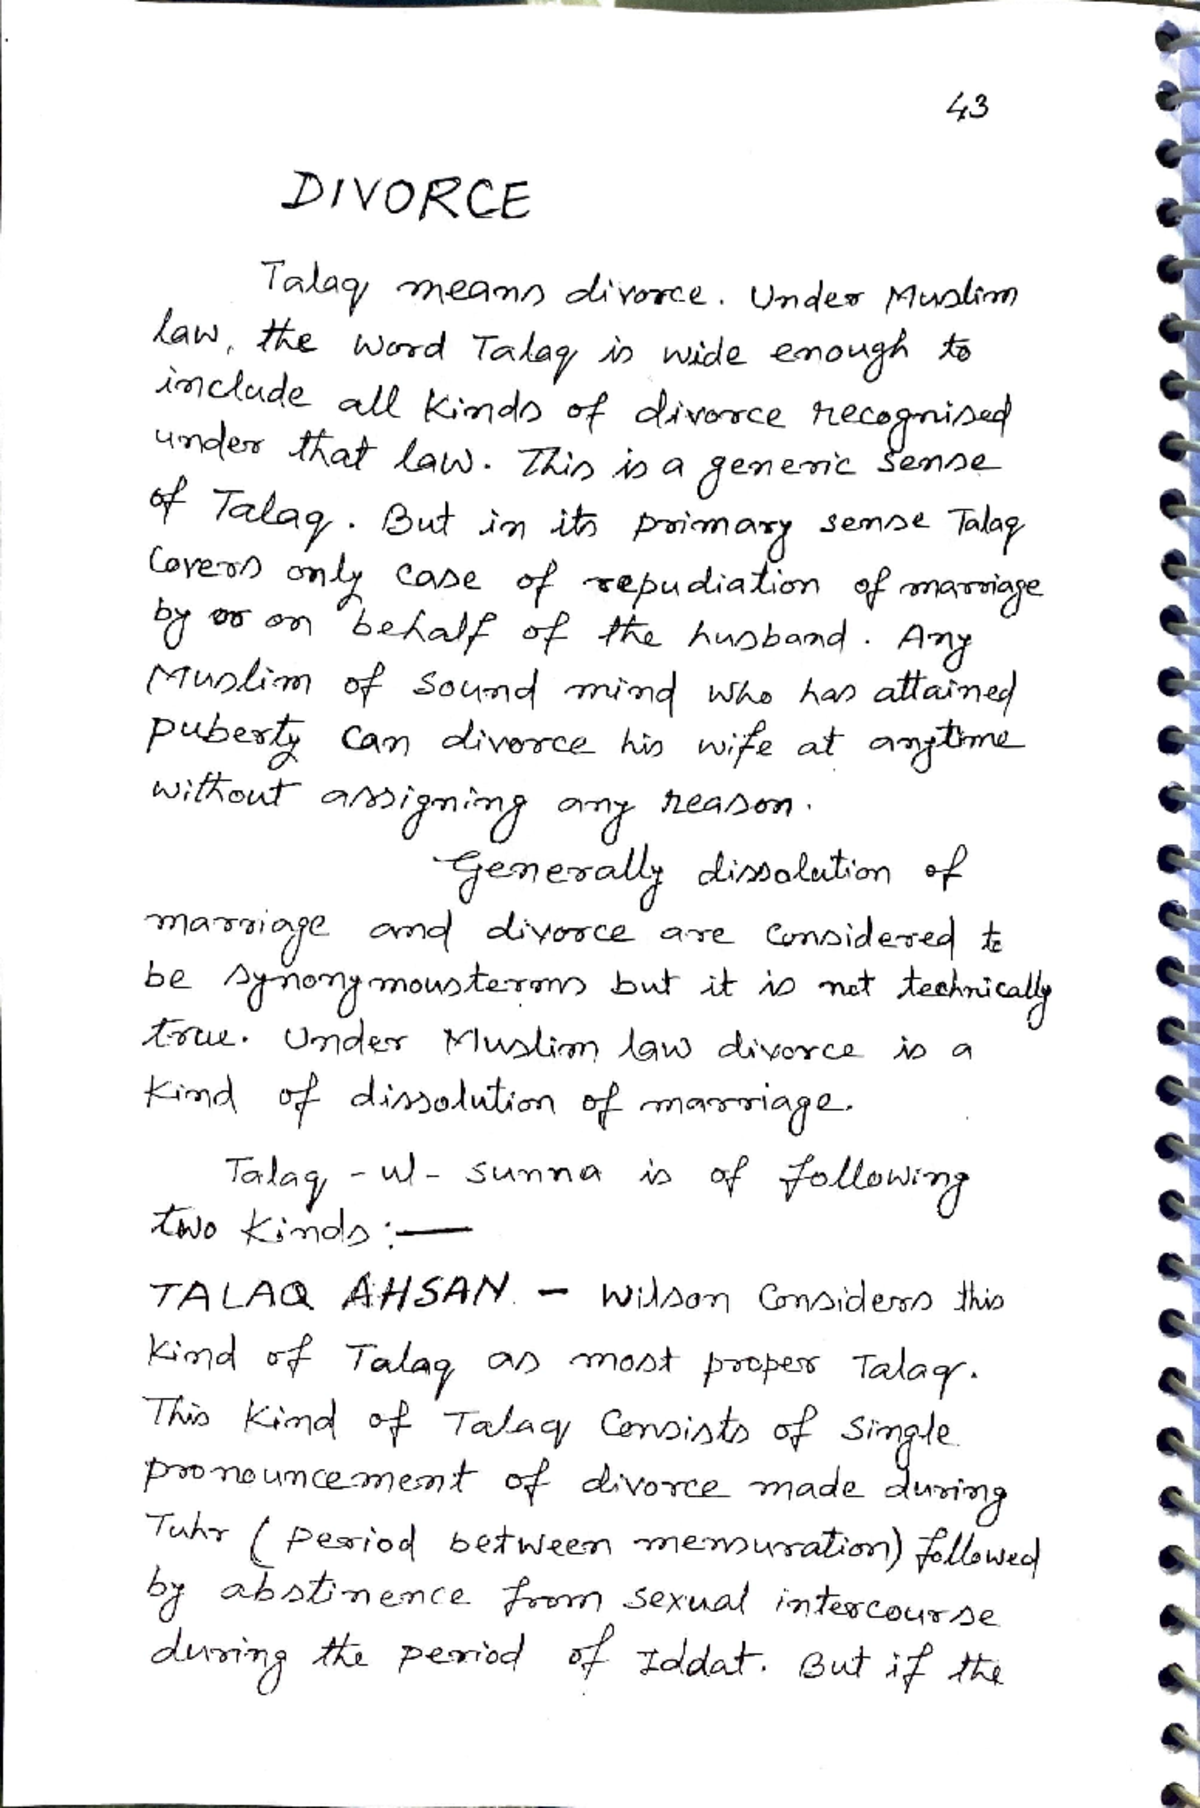 43
DIVORCE
Talaq means divorce. Under Muslim
law, the word Talaq is wide enough to
include all kinds of divorce recognised
under that law. This is a generic sense
of Talaq. But in its primary sense Talaq
Covers only case of repudiation of marriage
by or on behalf of the husband. Any
Muslim of sound mind who has attained
puberty can divorce his wife at anytime
without assigning any reason.
Generally dissolution of
marriage and divorce are considered to
be synonymous terms but it is not technically
true. Under Muslim law divorce is a
kind of dissolution of marriage.
Talaq-ul-sunna is of following
two kinds :—
TALAQ AHSAN. — Wilson Considers this
kind of Talaq as most proper Talaq.
This kind of Talaq Consists of single
pronouncement of divorce made during
Tuhr (period between mensuration) followed
by abstinence from sexual intercourse
during the period of Iddat. But if the